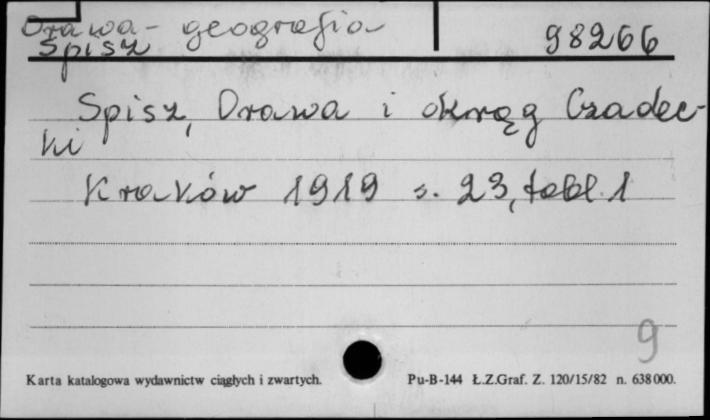 Orawa - geografia
Spisz
98266
Spisz, Orawa i okręg Czadec-
ki
Kraków 1919 s. 23, tabl. 1
9
Karta katalogowa wydawnictw ciągłych i zwartych.
Pu-B-144 Ł.Z.Graf. Z. 120/15/82 n. 638000.